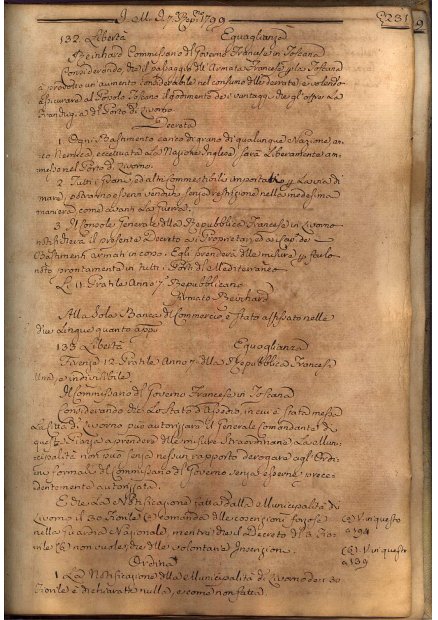 231
132. Libertà Eguaglianza
Reinhard Commissario del Governo Francese in Toscana
Considerando, che il passaggio dell'Armata Francese p. la Toscana
à prodotto un aumento considerabile nel consumo delle derrate, e volendo
assicurare al Popolo Toscano il godimento de' vantaggi che gli offre la
Franchigia del Porto di Livorno
Decreta
1. Ogni Bastimento carico di grano di qualunque Nazione, an-
co Nemica, eccettuata la Nazione Inglese, sarà liberamente am-
messo nel Porto di Livorno.
2. Tutti i Grani, ed altri commestibili importati p. la via di
mare, potranno essere venduti senza restrizione nella medesima
maniera come avanti la Guerra.
3. Il Console Generale della Repubblica Francese in Livorno
notificherà il presente Decreto ai Proprietari, ed ai Capi de'
Bastimenti armati in corso. Egli prenderà delle misure p. farlo
noto prontamente in tutti i Porti del Mediterraneo
Li 11. Pratile Anno 7. Repubblicano
Firmato Reinhard
Alla sola Banca di Commercio è stato affissato nelle
due Lingue quanto app.
133. Libertà Eguaglianza
Firenze 12. Pratile Anno 7. della Repubblica Francese
Una, e indivisibile
Il Commissario del Governo Francese in Toscana
Considerando che lo stato d'Assedio, in cui è stata messa
la Città di Livorno può autorizzare il Generale Comandante di
questa Piazza a prendere delle misure straordinarie la Muni-
cipalità non può senza nessun rapporto derogare agl'Ordi-
ni formali del Commissario del Governo senza esserne prece-
dentemente autorizzata.
E che la Notificazione fatta dalla Municipalità di
Livorno il 30 Fiorile (a) comanda delle coscrizioni forzose (a) V. in questo
nella Guardia Nazionale, mentre che il Decreto di 3. Fio- a 194
rile (b) non vuole, che delle volontarie Inscrizioni. (b) V. in questo
a 139
Ordina
1. La Notificazione della Municipalità di Livorno de' 30
Fiorile è dichiarata nulla, e come non fatta.